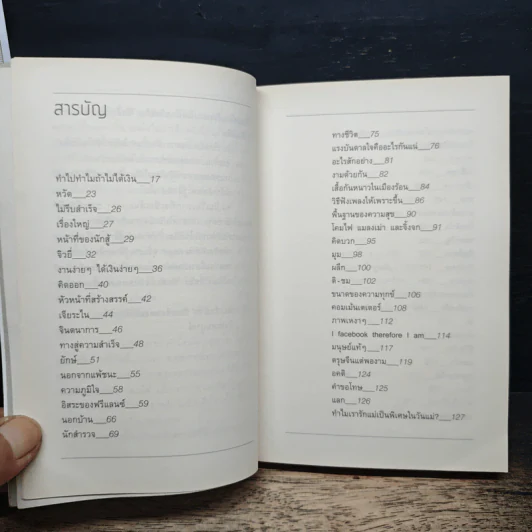 สารบัญ
ทำไปทำไมถ้าไม่ได้เงิน___17
หวัด___23
ไม่รีบสำเร็จ___26
เรื่องใหญ่___27
หน้าที่ของนักสู้___29
จิวยี่___32
งานง่ายๆ ได้เงินง่ายๆ___36
คิดออก___40
หัวหน้าที่สร้างสรรค์___42
เจียระไน___44
จินตนาการ___46
ทางสู่ความสำเร็จ___48
ยักษ์___51
นอกจากแพ้ชนะ___55
ความภูมิใจ___58
อิสระของฟรีแลนซ์___59
นอกบ้าน___66
นักสำรวจ___69
ทางชีวิต___75
แรงบันดาลใจคืออะไรกันแน่___76
อะไรสักอย่าง___81
งามด้วยกัน___82
เสื้อกันหนาวในเมืองร้อน___84
วิธีฟังเพลงให้เพราะขึ้น___86
พื้นฐานของความสุข___90
โคมไฟ แมลงเม่า และจิ้งจก___91
คิดบวก___95
มุม___98
ผลึก___100
ติ-ชม___102
ขนาดของความทุกข์___106
คอมเม้นเตเตอร์___108
ภาพเหงาๆ___112
I facebook therefore I am___114
มนุษย์แท้ๆ___117
ครุฑจีนแต่พองาม___119
อคติ___124
คำขอโทษ___125
แลก___126
ทำไมเรารักแม่เป็นพิเศษในวันแม่?___127